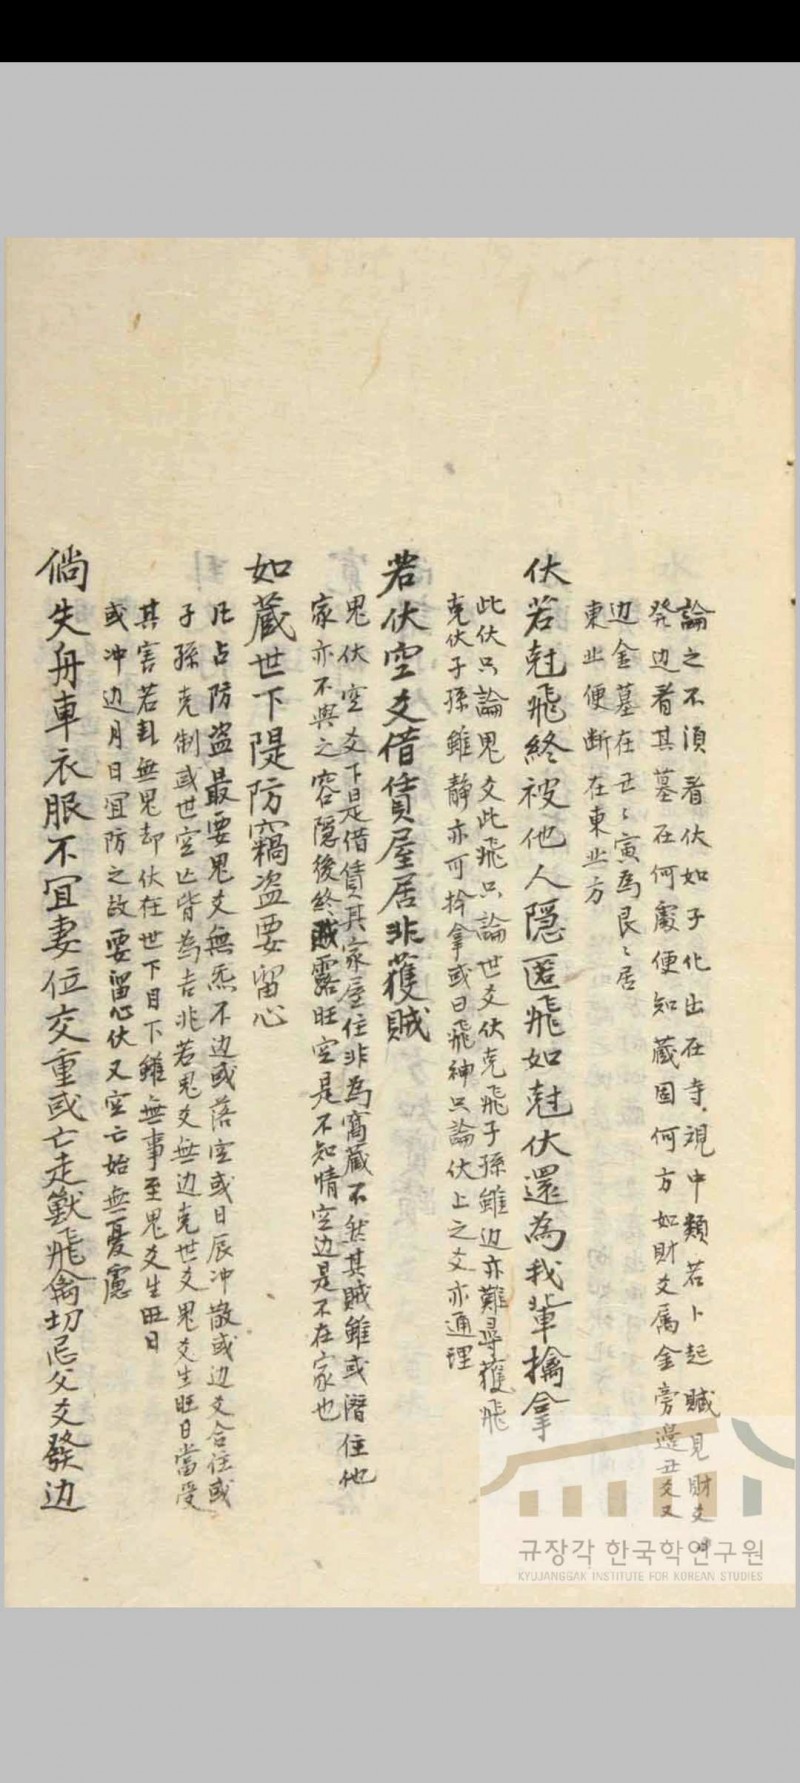 論之不須看伏如子化出在寺視中類若卜起贓見財爻
発边者其墓在何處便知蔵固何方如財爻属金旁邉丑爻又
边金墓在丑〻寅爲艮〻居
東北便断在東北方
伏若尅飛終被他人隱匿飛如尅伏還為我軰擒拿
此伏只論鬼爻此飛只論世爻伏克飛子孫雖边亦難尋獲飛
克伏子孫雖静亦可拎拿或曰飛神只論伏上之爻亦通理
若伏空爻借賃屋居非獲賊
鬼伏空爻下是借賃其家屋住非為窩蔵不然其賊雖或潛住他
家亦不與之容隱後終敗露旺空是不知情空边是不在家也
如蔵世下隄防竊盗要留心
凡占防盗最要鬼爻無炁不边或落空或日辰冲散或边爻合住或
子孫克制或世空亡皆為吉兆若鬼爻無边克世爻鬼爻生旺日當受
其害若卦無鬼却伏在世下目下雖無事至鬼爻生旺日
或冲边月日宜防之故要留心伏又空亡始無憂慮
倘失舟車衣服不宜妻位交重或亡走獸飛禽切忌父爻發边
규장각 한국학연구원
KYUJANGGAK INSTITUTE FOR KOREAN STUDIES